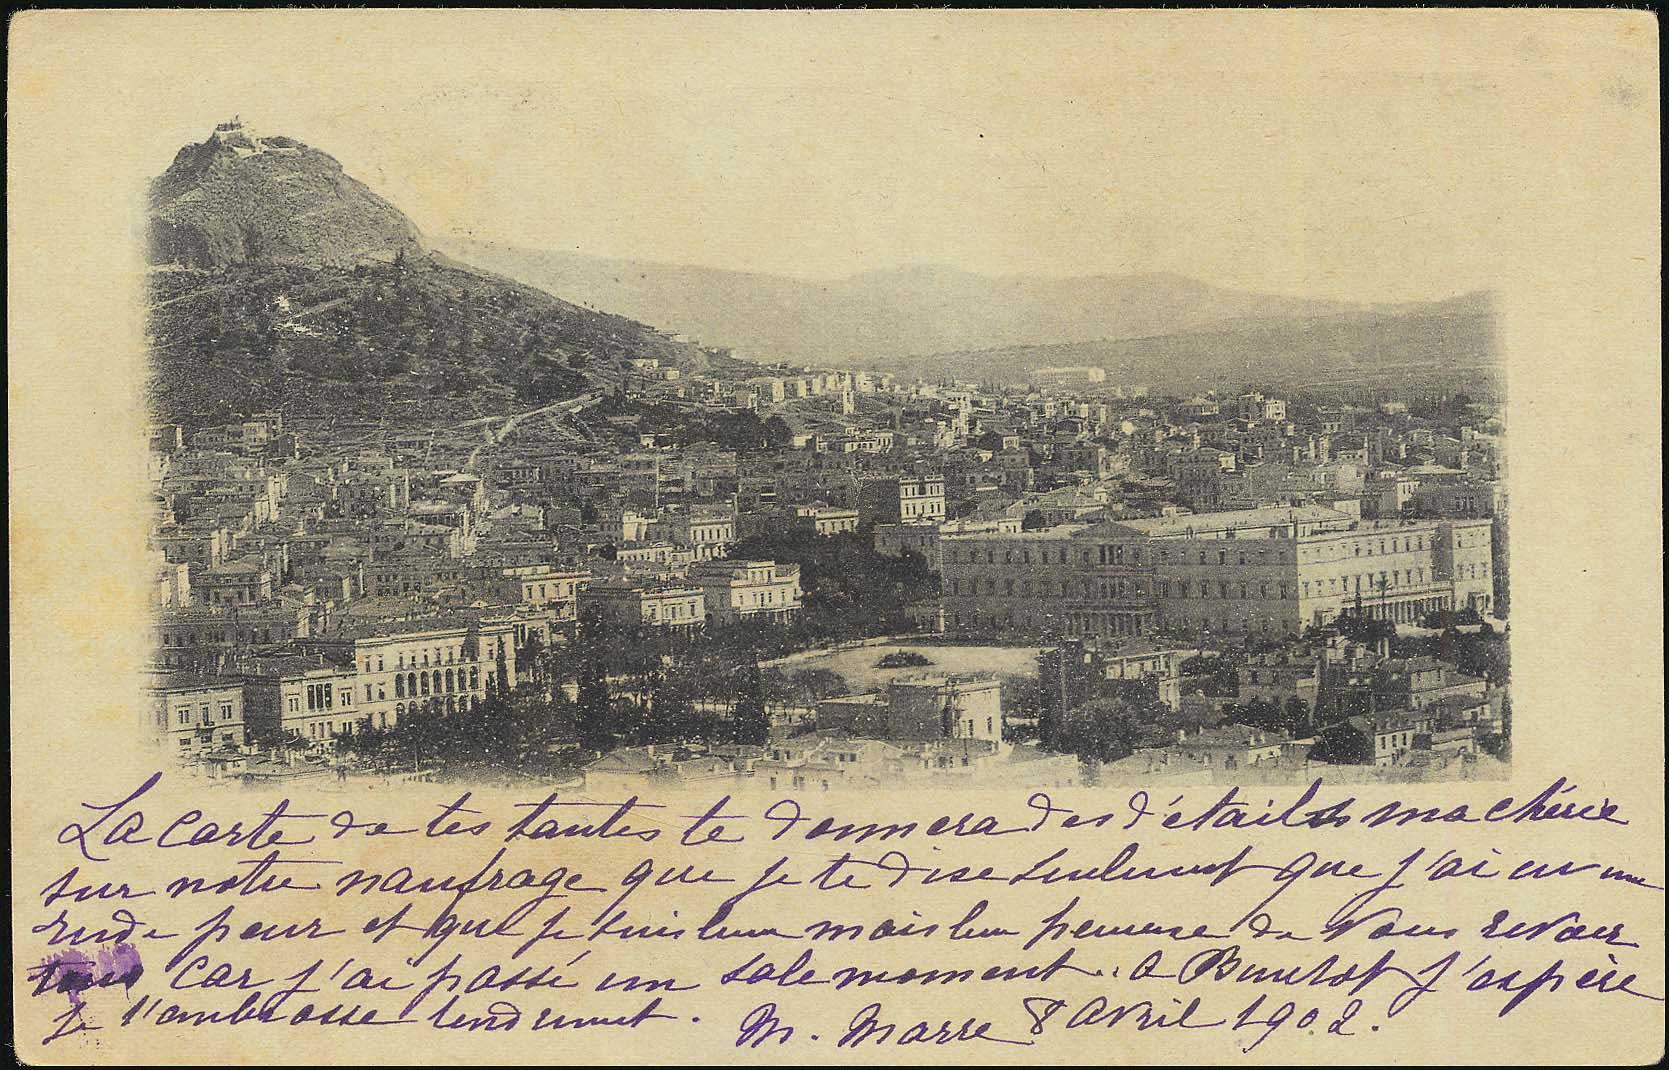 La carte de tes tantes te donnera des détails ma chérie
sur notre naufrage que je te dise seulement que j'ai eu une
rude peur et que je suis bien mais bien heureuse de vous revoir
tous car j'ai passé un sale moment .. a Bientot j'espère
je t'embrasse tendrement. M. Marre 8 avril 1902.